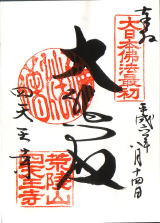 奉拝
大日本佛法最初
平成 年八月十四日
大 殿
四天王寺
荒陵山
四天王寺